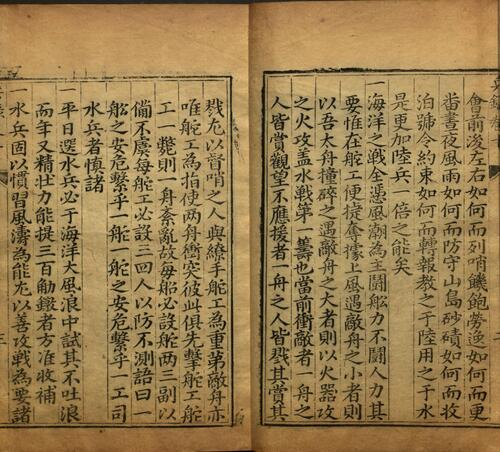 會前後左右如何而列哨饑飽勞逸如何而更
畨晝夜風雨如何而防守山島砂磧如何而收
泊號令約束如何而轉報教之于陸用之于水
是更加陸兵一倍之能矣
一海洋之戰全憑風潮為主鬪船力不鬪人力其
要惟在舵工便捷奪據上風遇敵舟之小者則
以吾大舟撞碎之遇敵舟之大者則以火器攻
之火攻盖水戰第一籌也當前衝敵者一舟之
人皆賞觀望不應援者一舟之人皆戮其賞其
戮尤以督哨之人與繚手舵工為重第敵舟亦
唯舵工為指使两舟衝突彼此俱先擊舵工舵
工一斃則一舟紊亂故每船必設舵两三副以
備不虞每舵工必設三四人以防不測語曰一
船之安危繫乎一舵一舵之安危繫乎一工司
水兵者慎諸
一平日選水兵必于海洋大風浪中試其不吐浪
而年又精壮力能提三百觔者方准收補
一水兵固以慣習風濤為能尤以善攻戰為要諸